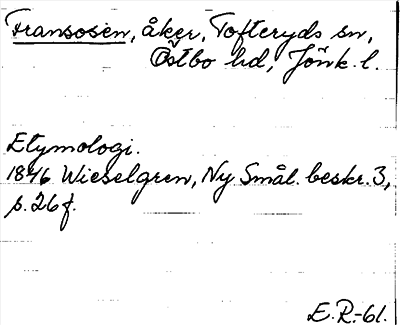 Fransosen, åker, Tofteryds sn,
Östbo hd, Jönk. l.
Etymologi.
1846 Wieselgren, Ny Smål. beskr. 3,
s. 26 f.
E.R.-61.